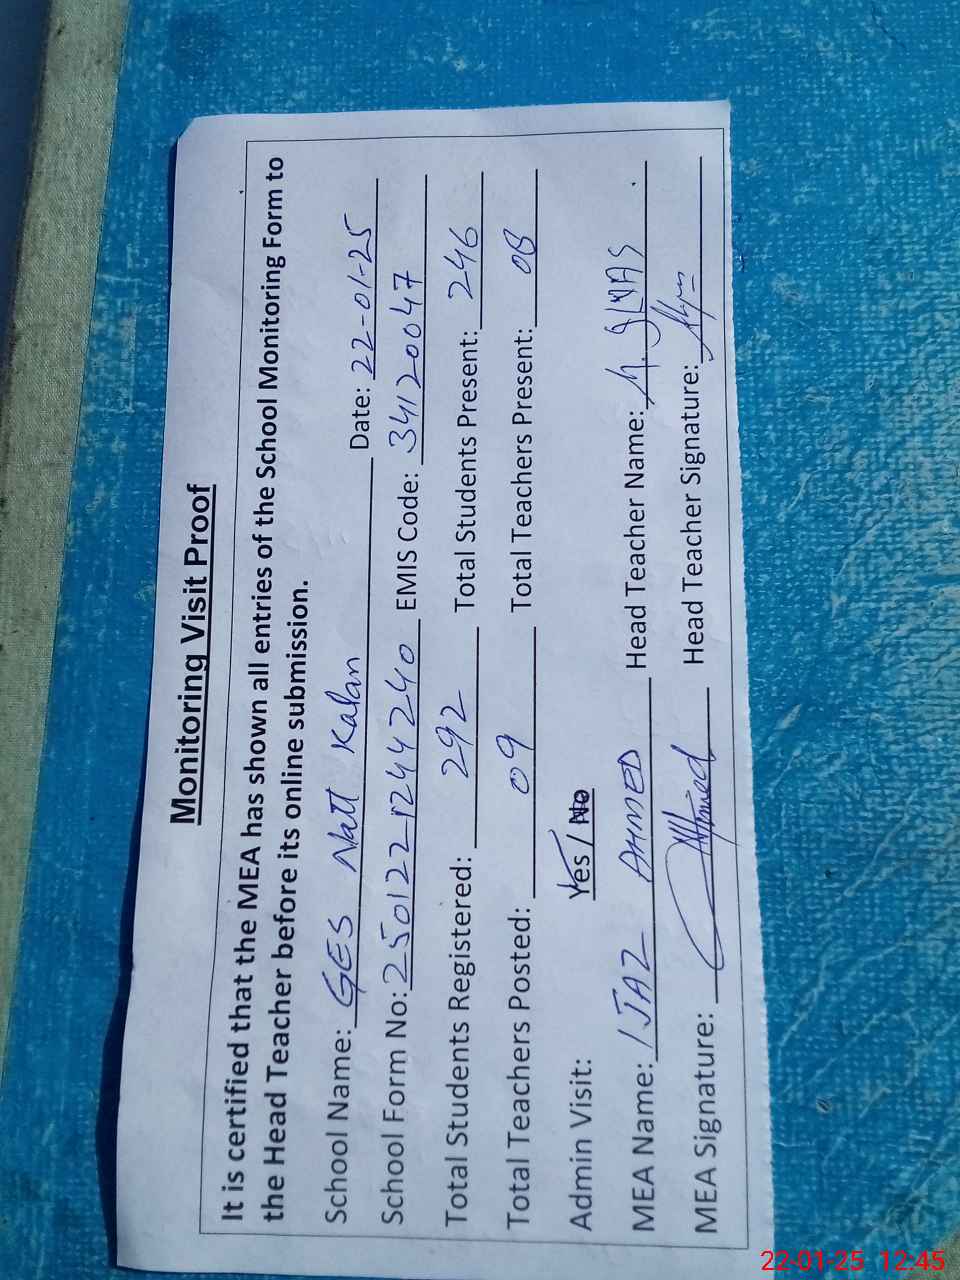 Monitoring Visit Proof
It is certified that the MEA has shown all entries of the School Monitoring Form to
the Head Teacher before its online submission.
School Name: GES Natt Kalan Date: 22-01-25
School Form No: 250122-1244240 EMIS Code: 34120047
Total Students Registered: 292 Total Students Present: 246
Total Teachers Posted: 09 Total Teachers Present: 08
Admin Visit: Yes / No
MEA Name: IJAZ AHMED Head Teacher Name: M. ILYAS
MEA Signature: Head Teacher Signature:
22-01-25 12:45